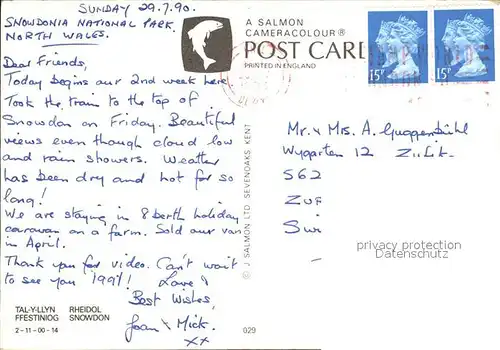 SUNDAY 29.7.90.
SNOWDONIA NATIONAL PARK.
NORTH WALES.
Dear Friends,
Today begins our 2nd week here
Took the train to the top of
Snowdon on Friday. Beautiful
views even though cloud low
and rain showers. Weather
has been dry and hot for so
long!
We are staying in 8 berth holiday
caravan on a farm. Sold our van
in April.
Thank you for video. Can't wait
to see you 1991! Love &
Best Wishes,
Joan & Mick.
xx
TAL-Y-LLYN RHEIDOL
FFESTINIOG SNOWDON
2-11-00-14
A SALMON
CAMERACOLOUR®
POST CARD
PRINTED IN ENGLAND
© J SALMON LTD. SEVENOAKS KENT
029
15P 15P
Mr. & Mrs. A. Guggenbühl
Wygarten 12
562
ZUF
Swi
privacy protection
Datenschutz